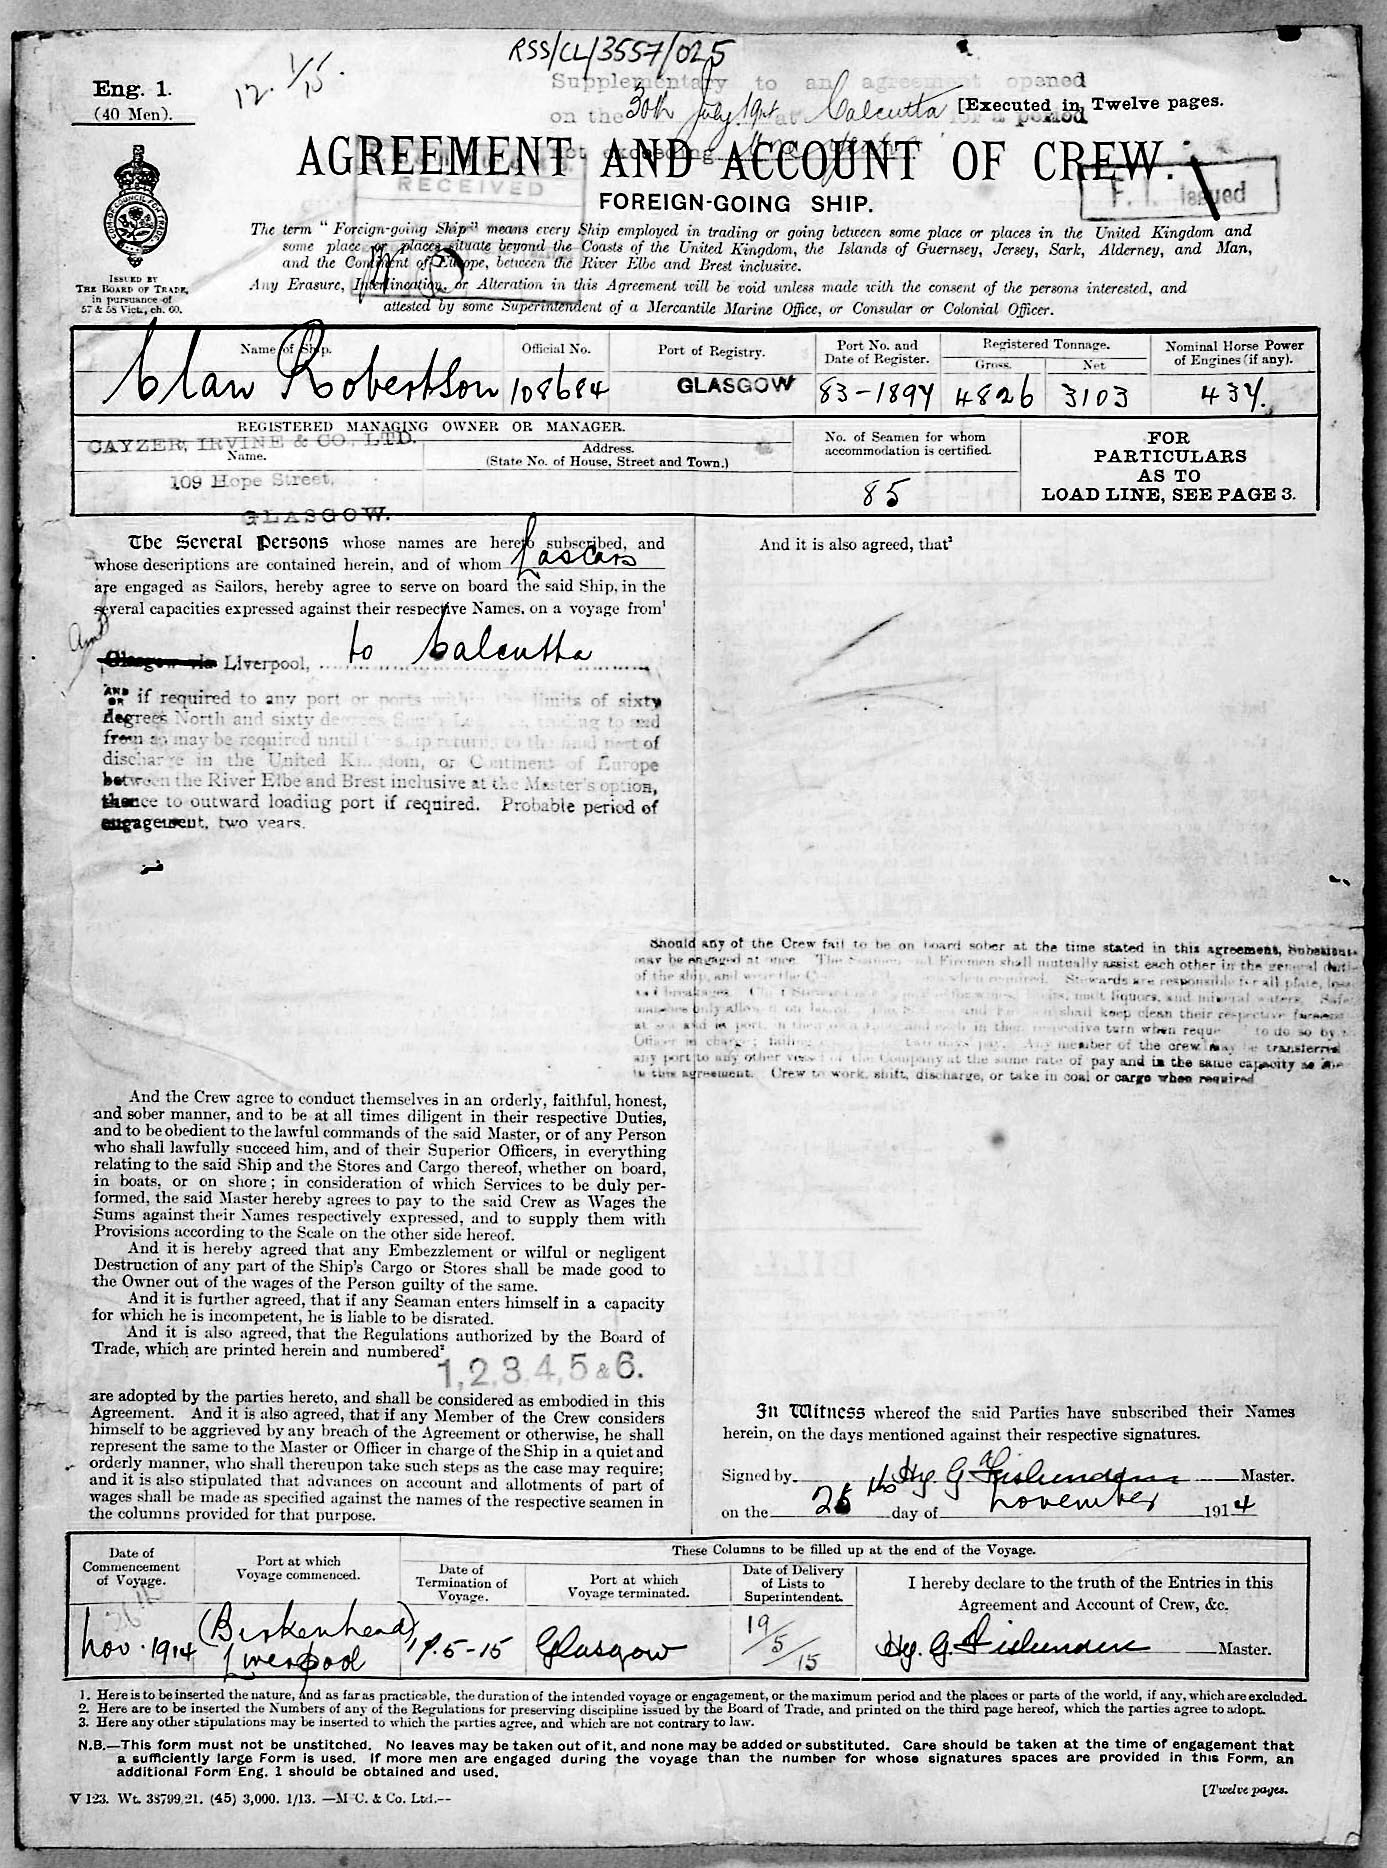 RSS/CL/3557/025
12. 1/15.
Eng. 1.
(40 Men).
Supplementary to an agreement opened
on the 30th July 19 at Calcutta for a period
not exceeding
[Executed in Twelve pages.
AGREEMENT AND ACCOUNT OF CREW.
RECEIVED
F. I. Issued
FOREIGN-GOING SHIP.
ISSUED BY
THE BOARD OF TRADE,
in pursuance of
57 & 58 Vict., ch. 60.
The term "Foreign-going Ship" means every Ship employed in trading or going between some place or places in the United Kingdom and
some place or places situate beyond the Coasts of the United Kingdom, the Islands of Guernsey, Jersey, Sark, Alderney, and Man,
and the Continent of Europe, between the River Elbe and Brest inclusive.
Any Erasure, Interlineation, or Alteration in this Agreement will be void unless made with the consent of the persons interested, and
attested by some Superintendent of a Mercantile Marine Office, or Consular or Colonial Officer.
Name of Ship. Official No. Port of Registry. Port No. and Date of Register. Registered Tonnage. Gross. Net. Nominal Horse Power of Engines (if any).
Clan Robertson 108684 GLASGOW 83-1897 4826 3103 437.
REGISTERED MANAGING OWNER OR MANAGER.
CAYZER, IRVINE & CO. LTD.
Name.
Address.
(State No. of House, Street and Town.)
109 Hope Street,
GLASGOW.
No. of Seamen for whom
accommodation is certified.
85
FOR
PARTICULARS
AS TO
LOAD LINE, SEE PAGE 3.
The Several Persons whose names are hereto subscribed, and
whose descriptions are contained herein, and of whom Lascars
are engaged as Sailors, hereby agree to serve on board the said Ship, in the
several capacities expressed against their respective Names, on a voyage from¹
Glasgow via Liverpool, to Calcutta
AND OR if required to any port or ports within the limits of sixty
degrees North and sixty degrees South Latitude, trading to and
from as may be required until the ship returns to the final port of
discharge in the United Kingdom, or Continent of Europe
between the River Elbe and Brest inclusive at the Master's option,
thence to outward loading port if required. Probable period of
engagement, two years.
And the Crew agree to conduct themselves in an orderly, faithful, honest,
and sober manner, and to be at all times diligent in their respective Duties,
and to be obedient to the lawful commands of the said Master, or of any Person
who shall lawfully succeed him, and of their Superior Officers, in everything
relating to the said Ship and the Stores and Cargo thereof, whether on board,
in boats, or on shore; in consideration of which Services to be duly per-
formed, the said Master hereby agrees to pay to the said Crew as Wages the
Sums against their Names respectively expressed, and to supply them with
Provisions according to the Scale on the other side hereof.
And it is hereby agreed that any Embezzlement or wilful or negligent
Destruction of any part of the Ship's Cargo or Stores shall be made good to
the Owner out of the wages of the Person guilty of the same.
And it is further agreed, that if any Seaman enters himself in a capacity
for which he is incompetent, he is liable to be disrated.
And it is also agreed, that the Regulations authorized by the Board of
Trade, which are printed herein and numbered²
1, 2, 3, 4, 5 & 6.
are adopted by the parties hereto, and shall be considered as embodied in this
Agreement. And it is also agreed, that if any Member of the Crew considers
himself to be aggrieved by any breach of the Agreement or otherwise, he shall
represent the same to the Master or Officer in charge of the Ship in a quiet and
orderly manner, who shall thereupon take such steps as the case may require;
and it is also stipulated that advances on account and allotments of part of
wages shall be made as specified against the names of the respective seamen in
the columns provided for that purpose.
And it is also agreed, that³
Should any of the Crew fail to be on board sober at the time stated in this agreement, Substitutes
may be engaged at once. The Seamen and Firemen shall mutually assist each other in the general duties
of the ship, and when required. Stewards are responsible for all plate, loss
and breakages. malt liquors, and mineral waters.
shall keep clean their respective
in their respective turn when to do so by
Officer in charge; failing two days pay. Any member of the crew may be transferred
any port to any other vessel of the Company at the same rate of pay and in the same capacity as
in this agreement. Crew to work, shift, discharge, or take in coal or cargo when required
In Witness whereof the said Parties have subscribed their Names
herein, on the days mentioned against their respective signatures.
Signed by Hy. G. Master.
on the 25 day of November 1914
Date of Commencement of Voyage. Port at which Voyage commenced. These Columns to be filled up at the end of the Voyage.
Date of Termination of Voyage. Port at which Voyage terminated. Date of Delivery of Lists to Superintendent.
I hereby declare to the truth of the Entries in this
Agreement and Account of Crew, &c.
26th Nov. 1914 (Birkenhead) Liverpool 17.5-15 Glasgow 19/5/15 Hy. G. Master.
1. Here is to be inserted the nature, and as far as practicable, the duration of the intended voyage or engagement, or the maximum period and the places or parts of the world, if any, which are excluded.
2. Here are to be inserted the Numbers of any of the Regulations for preserving discipline issued by the Board of Trade, and printed on the third page hereof, which the parties agree to adopt.
3. Here any other stipulations may be inserted to which the parties agree, and which are not contrary to law.
N.B.—This form must not be unstitched. No leaves may be taken out of it, and none may be added or substituted. Care should be taken at the time of engagement that
a sufficiently large Form is used. If more men are engaged during the voyage than the number for whose signatures spaces are provided in this Form, an
additional Form Eng. 1 should be obtained and used.
V 123. Wt. 38799/21. (45) 3,000. 1/13. —M'C. & Co. Ltd.—
[Twelve pages.